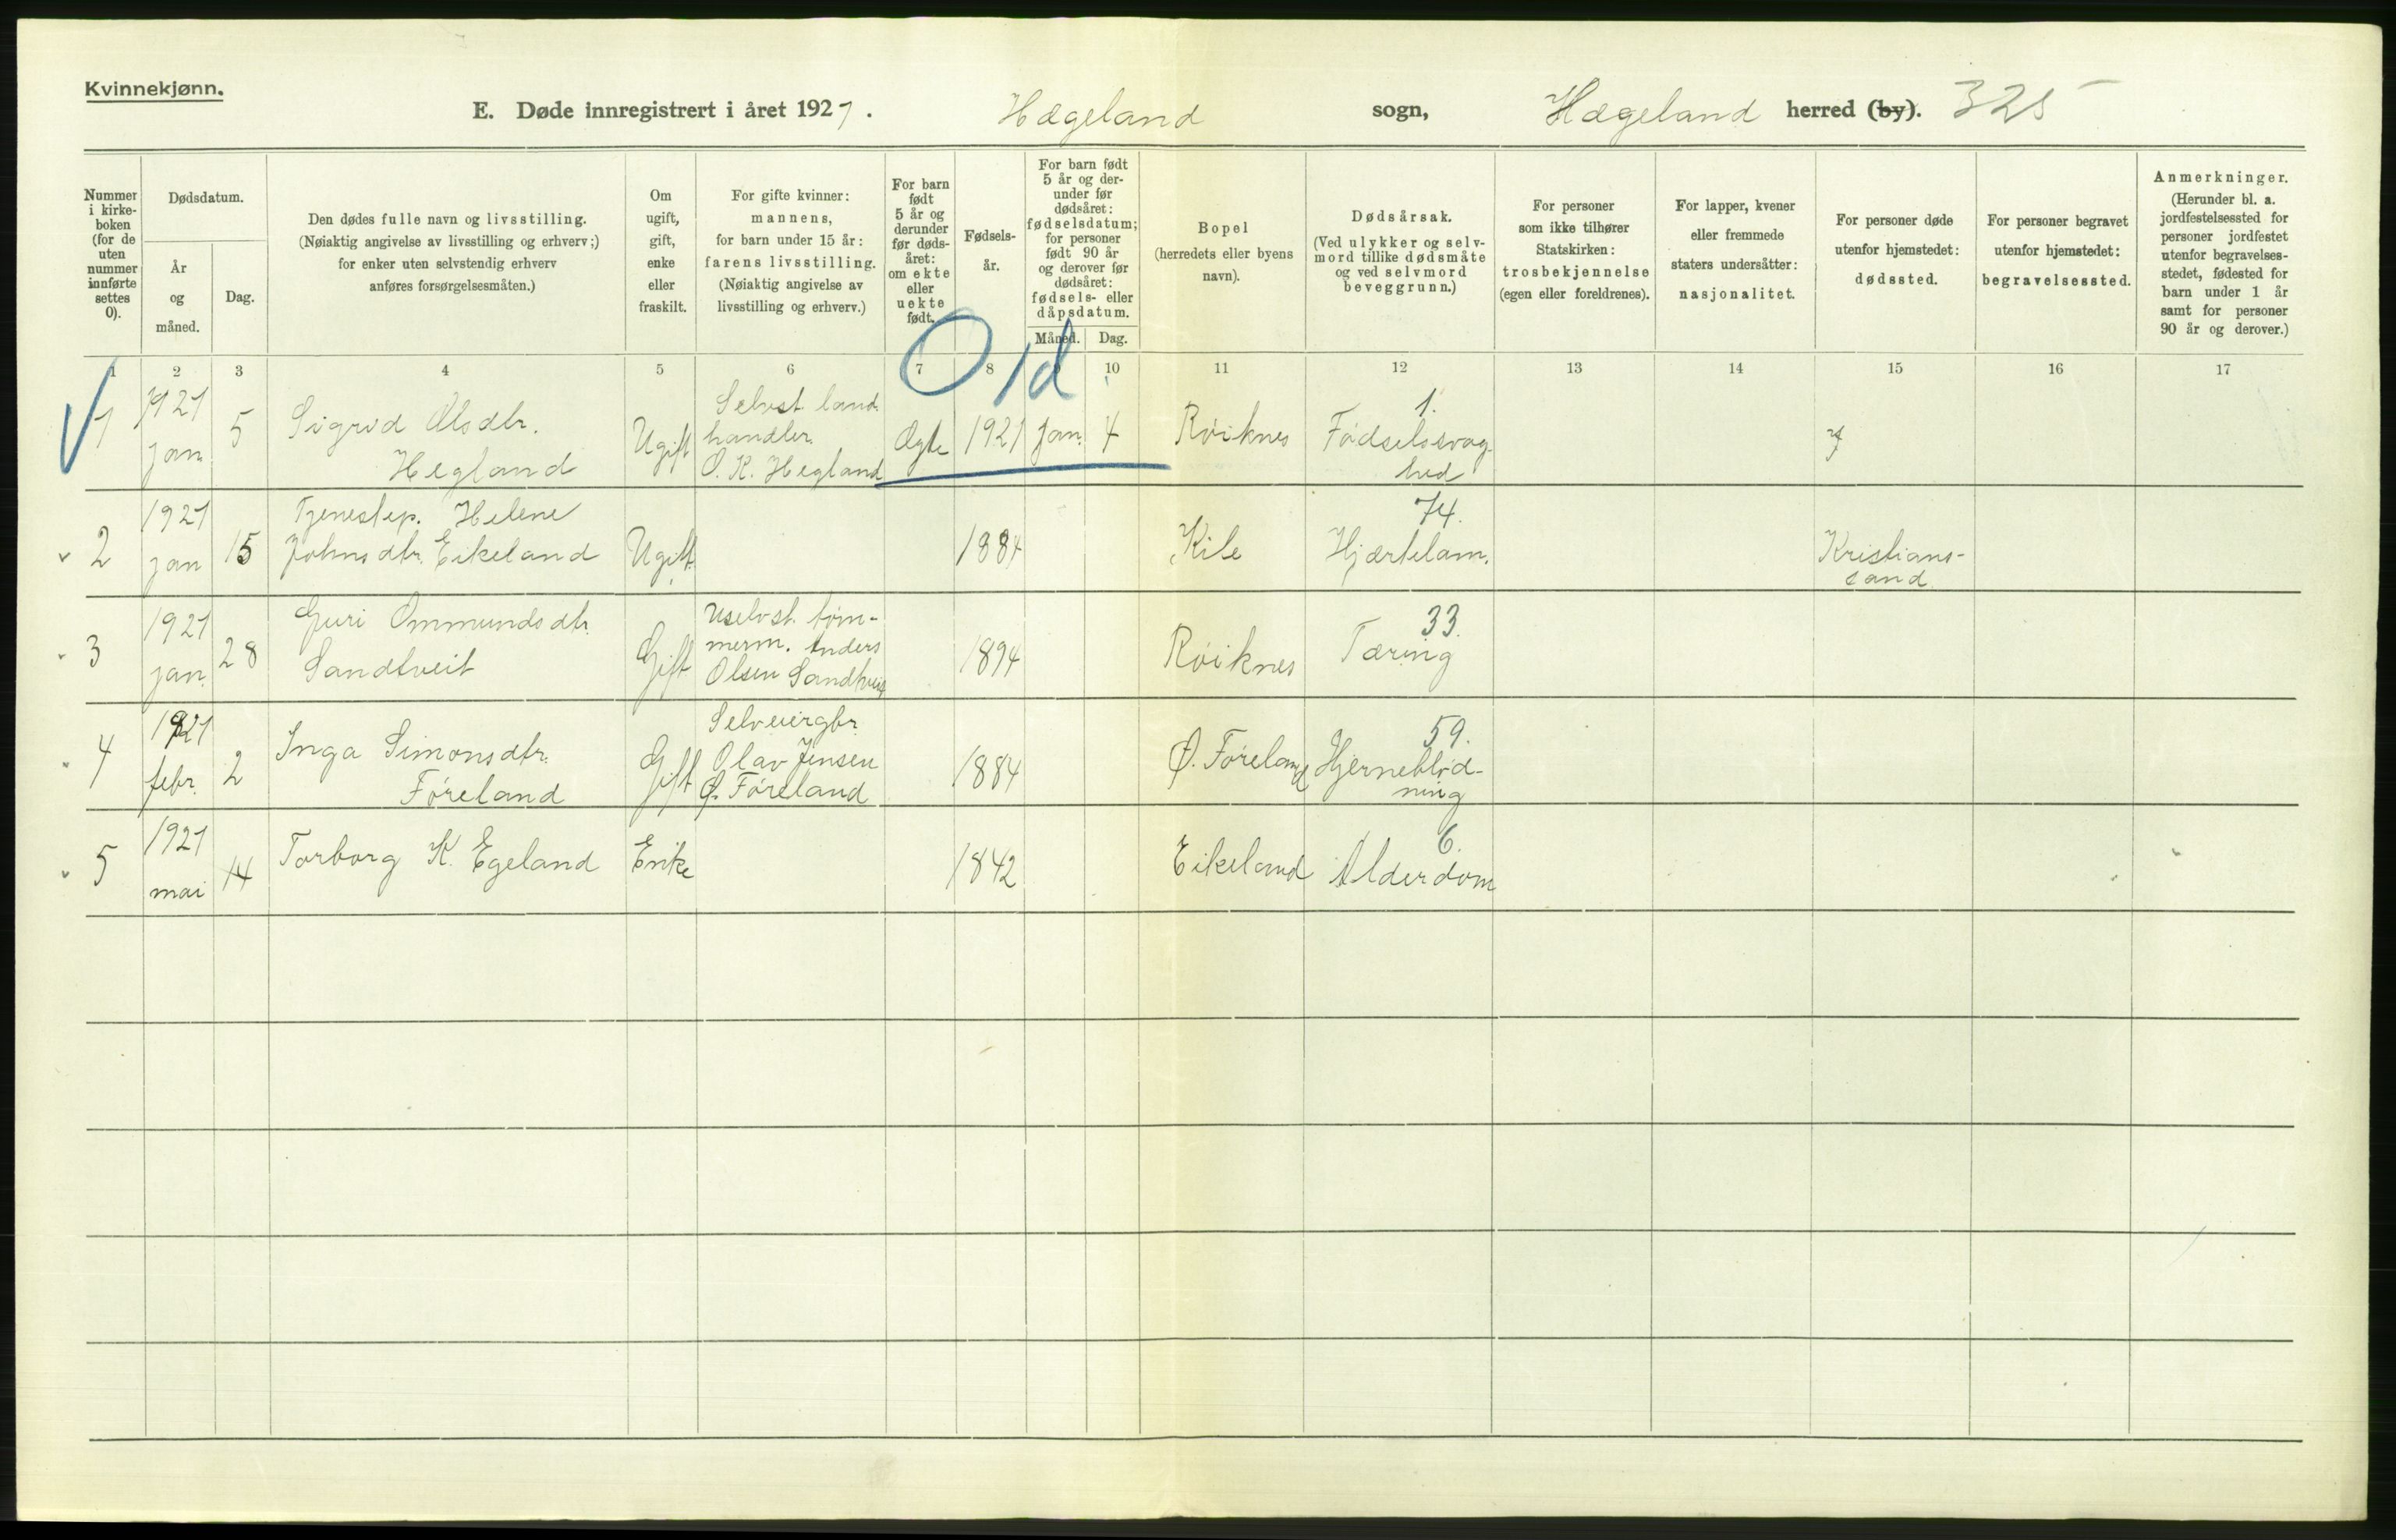 Kvinnekjønn.
E. Døde innregistrert i året 1921. Hægeland sogn, Hægeland herred (by). 325
Nummer i kirke-boken (for de uten nummer innførte settes 0).
Dødsdatum.
År og måned.
Dag.
Den dødes fulle navn og livsstilling.
(Nøiaktig angivelse av livsstilling og erhverv;)
for enker uten selvstendig erhverv
anføres forsørgelsesmåten.)
Om ugift, gift, enke eller fraskilt.
For gifte kvinner:
mannens,
for barn under 15 år:
farens livsstilling.
(Nøiaktig angivelse av
livsstilling og erhverv.)
For barn født 5 år og derunder før døds-året: om ekte eller uekte født.
Fødsels-år.
For barn født
5 år og der-
under før
dødsåret:
fødselsdatum;
for personer
født 90 år
og derover før
dødsåret:
fødsels- eller
dåpsdatum.
Måned.
Dag.
Bopel
(herredets eller byens
navn).
Dødsårsak.
(Ved ulykker og selv-
mord tillike dødsmåte
og ved selvmord
beveggrunn.)
For personer
som ikke tilhører
Statskirken:
trosbekjennelse
(egen eller foreldrenes).
For lapper, kvener
eller fremmede
staters undersåtter:
nasjonalitet.
For personer døde
utenfor hjemstedet:
dødssted.
For personer begravet
utenfor hjemstedet:
begravelsessted.
Anmerkninger.
(Herunder bl. a.
jordfestelsessted for
personer jordfestet
utenfor begravelses-
stedet, fødested for
barn under 1 år
samt for personer
90 år og derover.)
1 2 3 4 5 6 7 8 9 10 11 12 13 14 15 16 17
O 1d
1 1921 jan 5 Sigrid Olsdtr. Hegland Ugift Selvst. land handler O. K. Hegland Ægte 1921 jan. 4 Røiknes 1. Fødselssvaghed
2 1921 jan 15 Tjenestep. Helene Johnsdtr. Eikeland Ugift 1884 Kile 74. Hjærtelam. Kristianssand
3 1921 jan. 28 Guri Ommundsdtr. Sandtveit Gift Uselvst. tøm-merm. Anders Olsen Sandtveit 1894 Røiknes 33. Tæring
4 1921 febr. 2 Inga Simonsdtr. Føreland Gift Selveiergbr. Olav Jensen Ø. Føreland 1884 Ø. Føreland 59. Hjerneblød-ning
5 1921 mai 14 Torborg K. Egeland Enke 1842 Eikeland 6. Alderdom